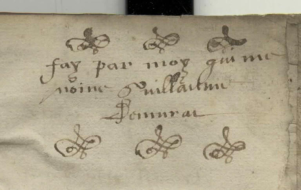 fay par moy qui me
nome Guillaume
Demurat